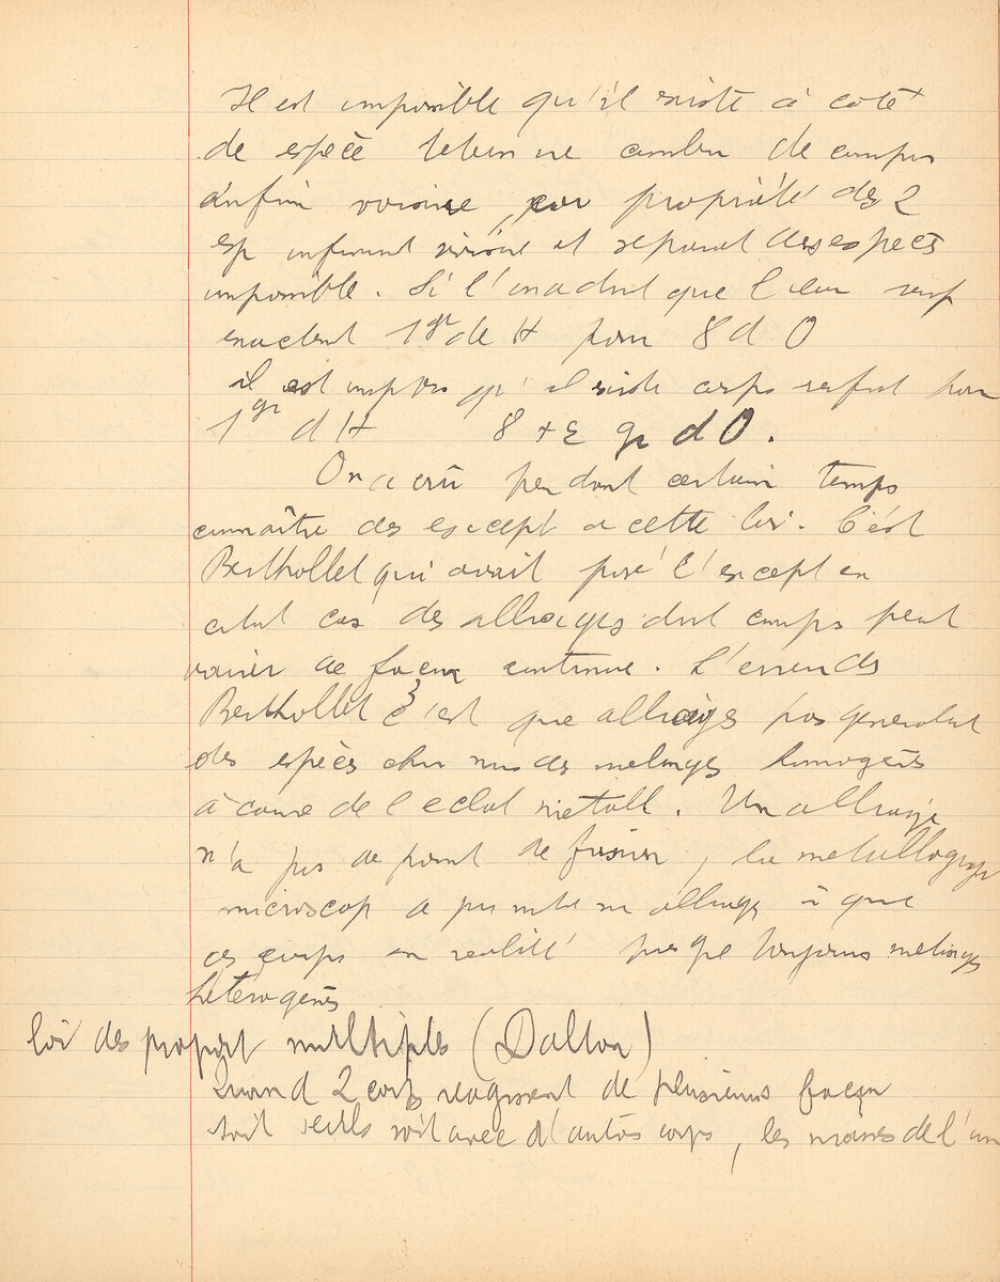 Il est impossible qu'il existe à coté
de espèce de compos
d'infin voisine, par propriété des 2
esp infiniment voisine et separant des espèces
impossible. Si l'on admet que l'eau renf
exactent 1gr de H pour 8 d O
il est imposs qu'il existe corps renfant pour
1gr d H 8 + ε gr d O.
On a crû pendant certain temps
connaître des except a cette loi. C'est
Berthollet qui avait posé l'except en
cas des alliages dont comps peut
varier de façon continue. L'erreur de
Berthollet c'est que alliages pas generalent
des espèces chim mais des melanges homogenes
à cause de l'eclat metall. Un alliage
n'a pas de point de fusion, la metallograp
microscop a permis alliages à que
ces corps en realité presque toujours melanges
hétérogenes
loi des proport multiples (Dalton)
Quand 2 corps reagissent de plusieurs façon
soit seuls soit avec d'autres corps, les masses de l'un